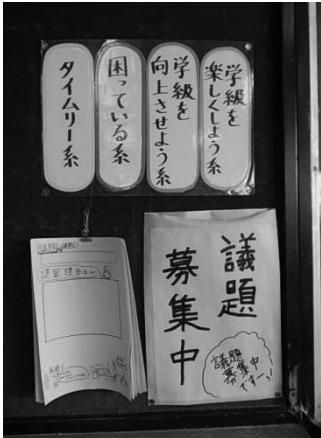 学級を
楽しくしよう系
学級を
向上させよう系
困っている系
タイムリー系
議題
募集中
議題
募集中
です〜!
提案理由は〜